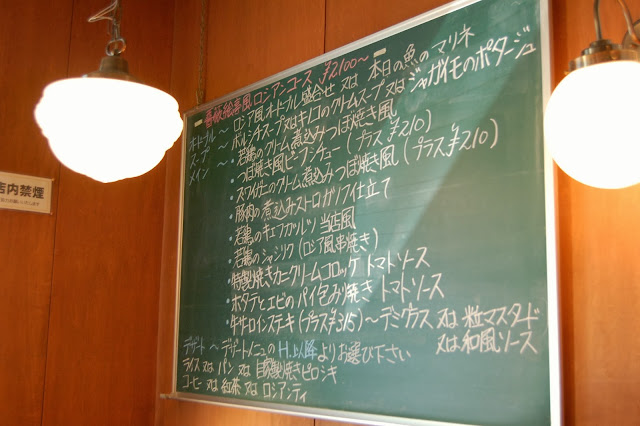 風ロシアンコース ¥2100～
オードブル～ ロシア風オードブル盛合せ 又は 本日の魚のマリネ
スープ～ ボルシチスープ又はキノコのクリームスープ又はジャガイモのポタージュ
メイン～ ・若鶏のクリーム煮込みつぼ焼き風
・つぼ焼き風ビーフシチュー(プラス¥210)
・ズワイガニのクリーム煮込みつぼ焼き風(プラス¥210)
・豚肉の煮込みストロガノフ仕立て
・若鶏のキエフカツレツ 当店風
・若鶏のシャシリク(ロシア風串焼き)
・特製焼きカニクリームコロッケ トマトソース
・ホタテとエビのパイ包み焼き トマトソース
・牛サーロインステーキ(プラス¥315)～デミグラス 又は 粒マスタード
又は和風ソース
デザート～デザートメニューの よりお選び下さい
ライス 又は パン 又は 自家製焼きピロシキ
コーヒー 又は 紅茶 又は ロシアンティ
店内禁煙